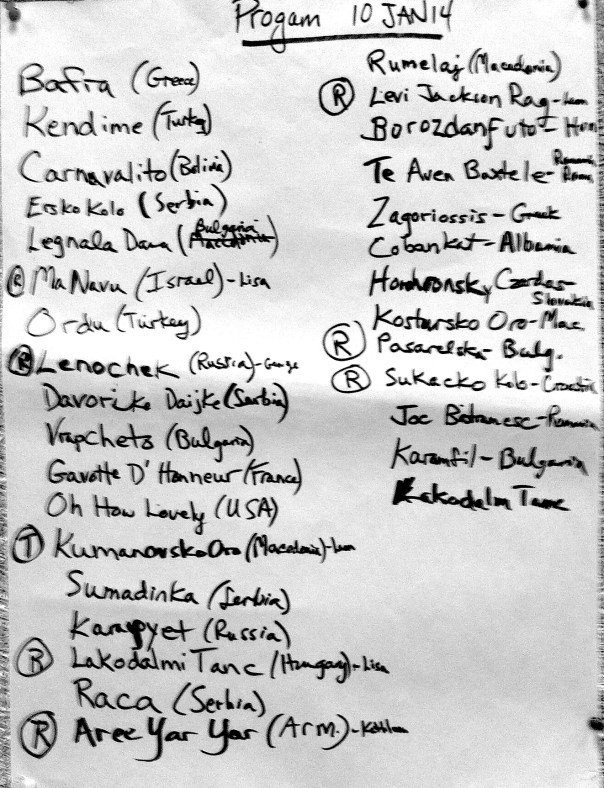 Progam 10 JAN 14
Bafra (Greece)
Kendime (Turkey)
Carnavalito (Bolivia)
Ersko Kolo (Serbia)
Legnala Dana (Bulgaria)
Ⓡ Ma Navu (Israel) - Lisa
Ordu (Turkey)
Ⓡ Lenochek (Russia) - George
Davoriko Daijke (Serbia)
Vrapcheto (Bulgaria)
Gavotte D'Honneur (France)
Oh How Lovely (USA)
Ⓣ Kumanovsko Oro (Macedonia) -
Sumadinka (Serbia)
Karapyet (Russia)
Ⓡ Lakodalmi Tanc (Hungary) - Lisa
Raca (Serbia)
Ⓡ Aree Yar Yar (Arm.) -
Rumelaj (Macedonia)
Ⓡ Levi Jackson Rag -
Borozdanfutot - Hun
Te Aven Baxtele -
Zagoriossis - Greek
Cobankat - Albania
Czardas - Slovakia
Kostursko Oro - Mac.
Ⓡ Pasarelska - Bulg.
Ⓡ Sukacko Kolo - Croatia
Joc Batranesc - Romania
Karamfil - Bulgaria
Lakodalm Tanc